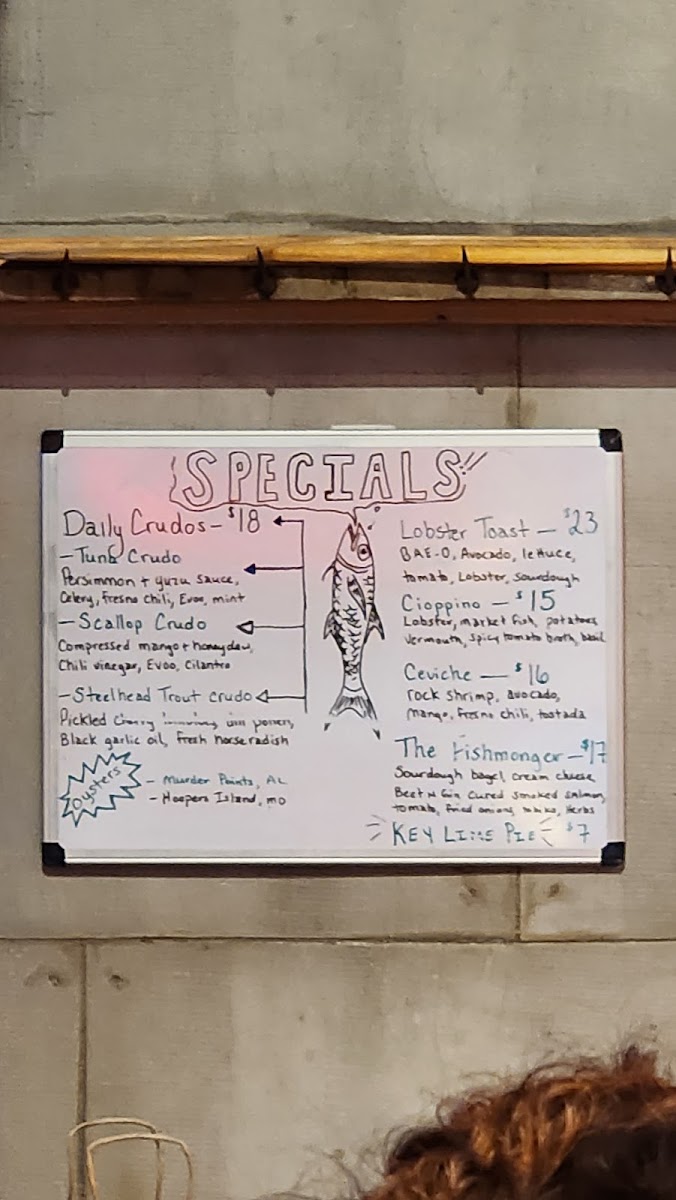 SPECIALS!!
Daily Crudos - $18
- Tuna Crudo
Persimmon + yuzu sauce,
Celery, fresno chili, Evoo, mint
- Scallop Crudo
Compressed mango + honeydew,
Chili vinegar, EVOO, Cilantro
- Steelhead Trout crudo
Pickled cherry
Black garlic oil, fresh horseradish
Oysters
- Murder Points, AL
- Hoopers Island, mo
Lobster Toast - $23
BAE-O, Avocado, lettuce,
tomato, Lobster, sourdough
Cioppino - $15
Lobster, market fish, potatoes
vermouth, spicy tomato broth, basil
Ceviche - $16
rock shrimp, avocado,
mango, fresno chili, tostada
The Fishmonger - $17
Sourdough bagel, cream cheese,
Beet n Gin Cured smoked salmon,
tomato, fried onions, Herbs
KEY LIME PIE $7